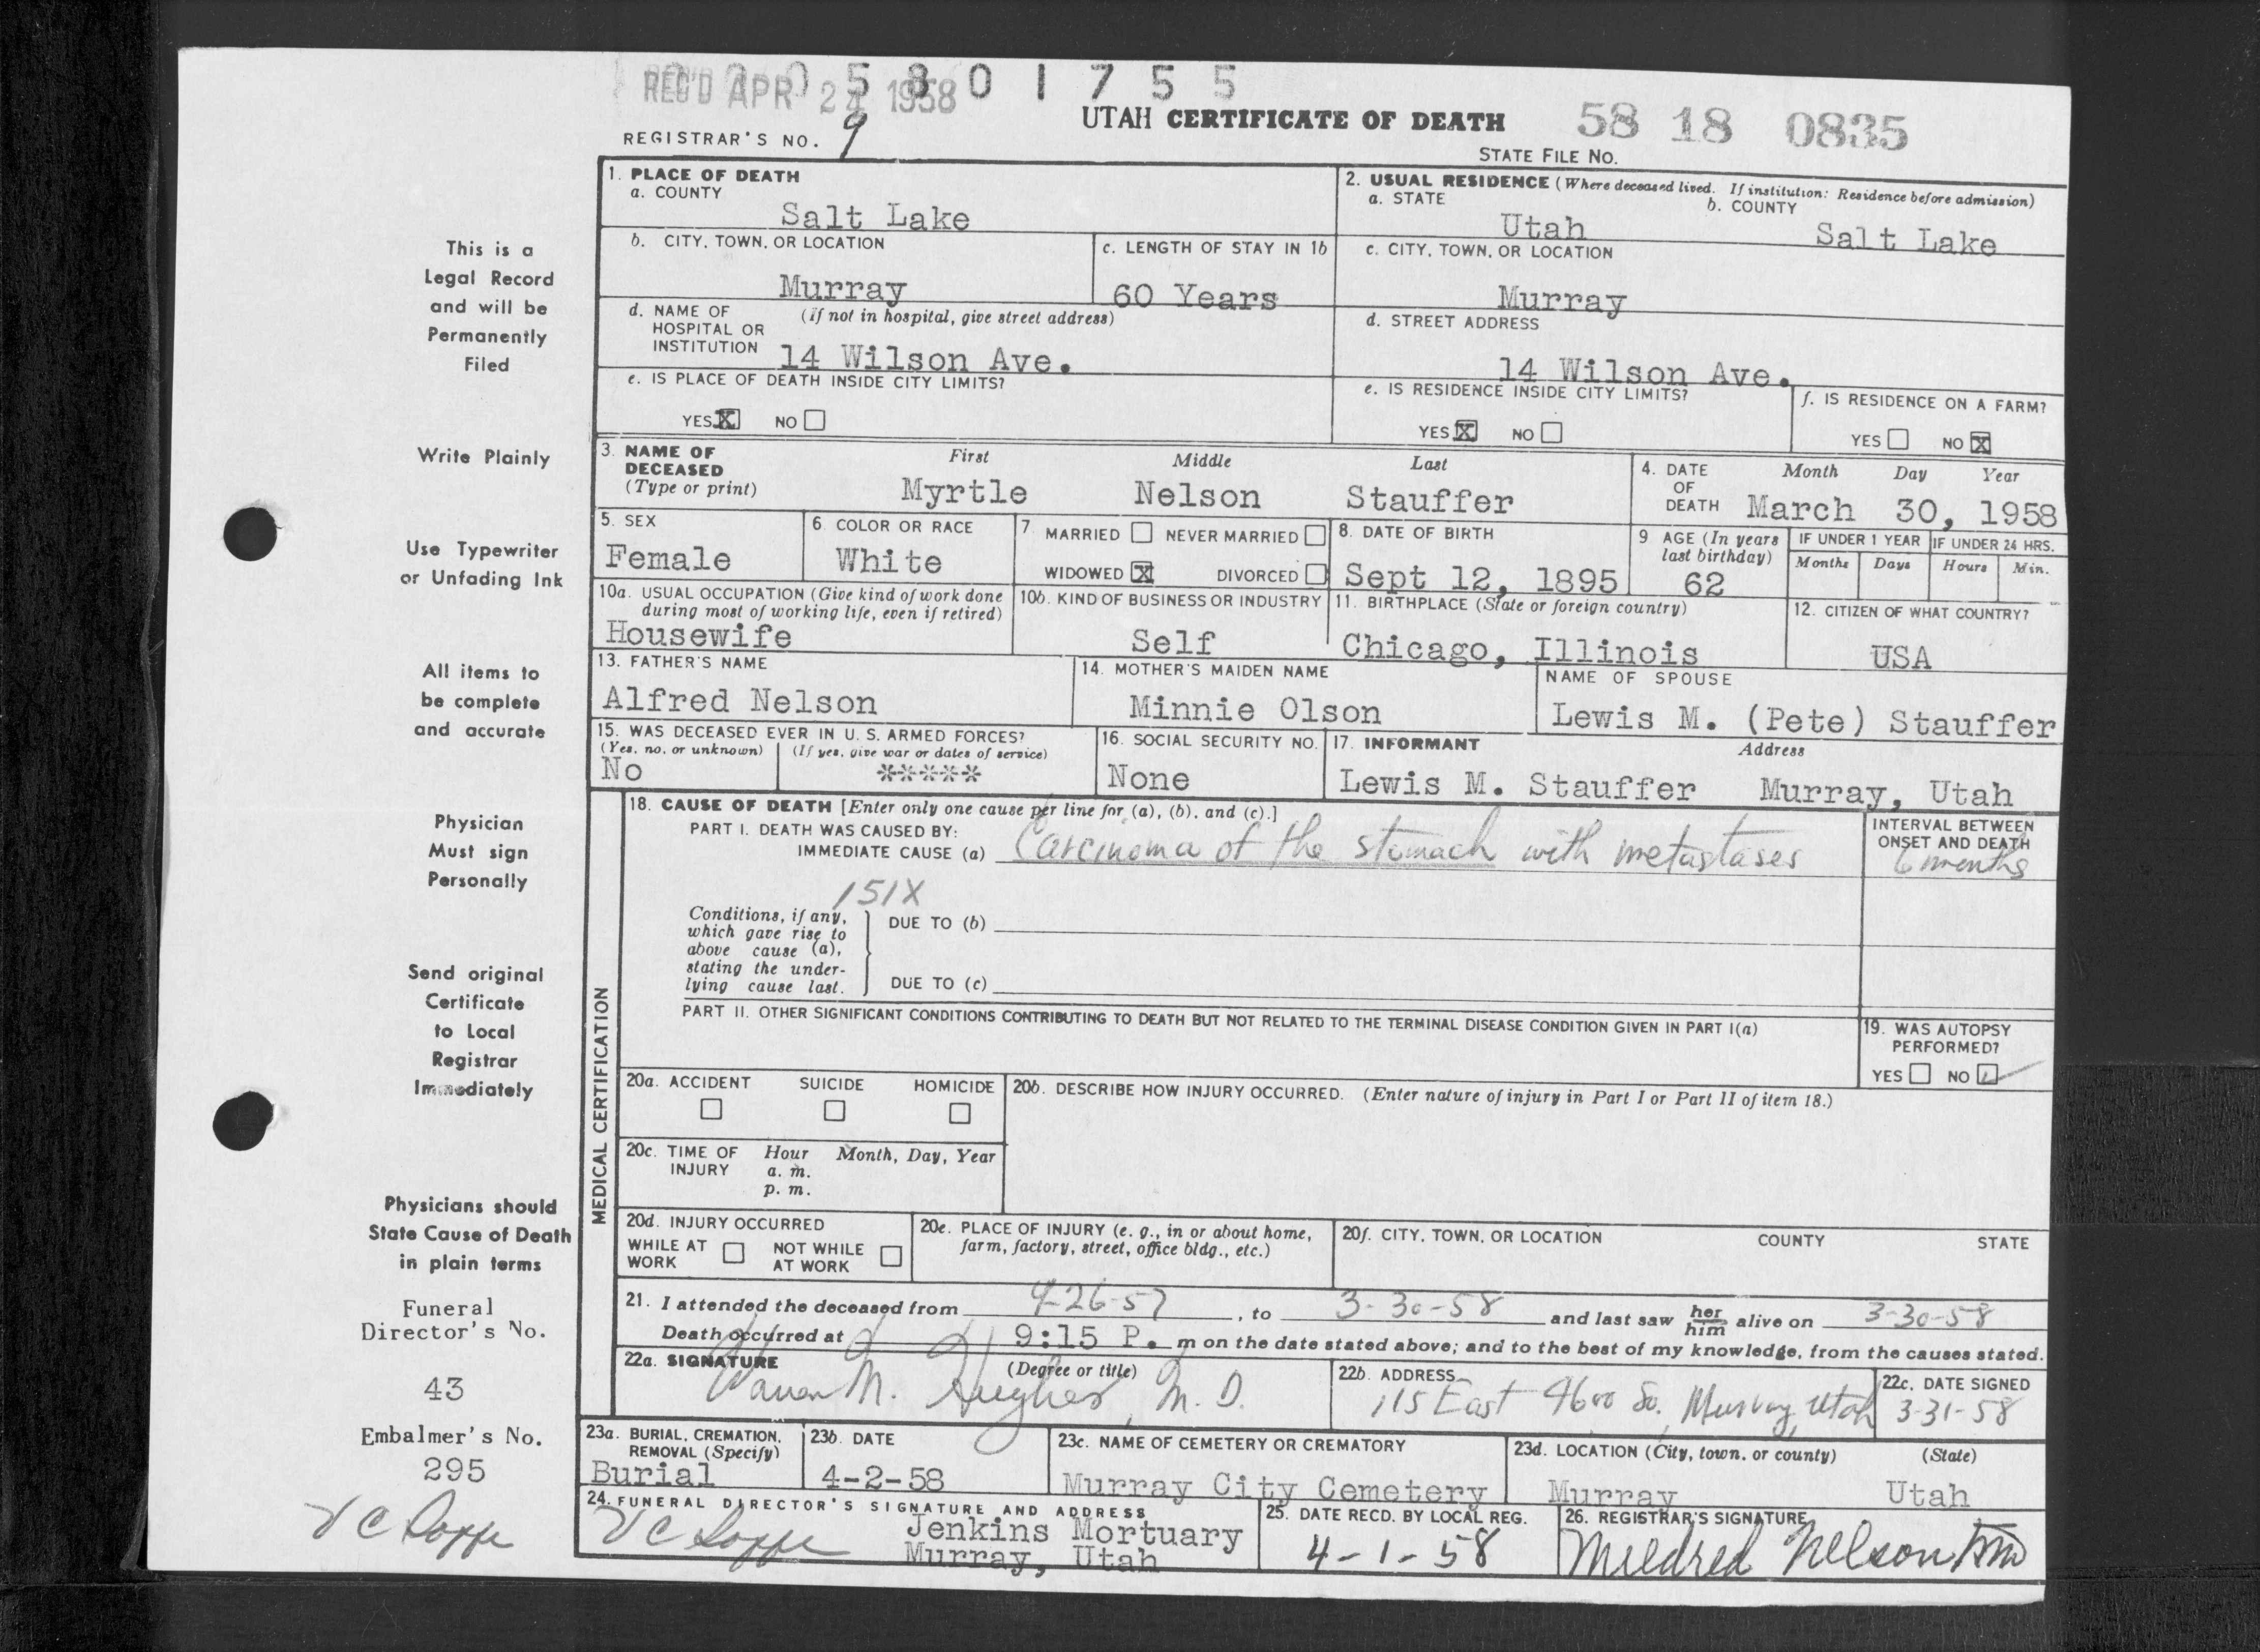 0005801755
REC'D APR 24 1958
UTAH CERTIFICATE OF DEATH 58 18 0835
REGISTRAR'S NO. 9
STATE FILE NO.
This is a
Legal Record
and will be
Permanently
Filed
Write Plainly
Use Typewriter
or Unfading Ink
All items to
be complete
and accurate
Physician
Must sign
Personally
Send original
Certificate
to Local
Registrar
Immediately
Physicians should
State Cause of Death
in plain terms
Funeral
Director's No.
43
Embalmer's No.
295
1. PLACE OF DEATH
a. COUNTY
Salt Lake
2. USUAL RESIDENCE (Where deceased lived. If institution: Residence before admission)
a. STATE b. COUNTY
Utah Salt Lake
b. CITY, TOWN, OR LOCATION
Murray
c. LENGTH OF STAY IN 1b
60 Years
c. CITY, TOWN, OR LOCATION
Murray
d. NAME OF (If not in hospital, give street address)
HOSPITAL OR
INSTITUTION 14 Wilson Ave.
d. STREET ADDRESS
14 Wilson Ave.
e. IS PLACE OF DEATH INSIDE CITY LIMITS?
YES X NO
e. IS RESIDENCE INSIDE CITY LIMITS?
YES X NO
f. IS RESIDENCE ON A FARM?
YES NO X
3. NAME OF First Middle Last
DECEASED
(Type or print) Myrtle Nelson Stauffer
4. DATE Month Day Year
OF
DEATH March 30, 1958
5. SEX
Female
6. COLOR OR RACE
White
7. MARRIED NEVER MARRIED
WIDOWED X DIVORCED
8. DATE OF BIRTH
Sept 12, 1895
9 AGE (In years
last birthday)
62
IF UNDER 1 YEAR IF UNDER 24 HRS.
Months Days Hours Min.
10a. USUAL OCCUPATION (Give kind of work done
during most of working life, even if retired)
Housewife
10b. KIND OF BUSINESS OR INDUSTRY
Self
11. BIRTHPLACE (State or foreign country)
Chicago, Illinois
12. CITIZEN OF WHAT COUNTRY?
USA
13. FATHER'S NAME
Alfred Nelson
14. MOTHER'S MAIDEN NAME
Minnie Olson
NAME OF SPOUSE
Lewis M. (Pete) Stauffer
15. WAS DECEASED EVER IN U. S. ARMED FORCES?
(Yes, no, or unknown) (If yes, give war or dates of service)
No *****
16. SOCIAL SECURITY NO.
None
17. INFORMANT Address
Lewis M. Stauffer Murray, Utah
MEDICAL CERTIFICATION
18. CAUSE OF DEATH [Enter only one cause per line for (a), (b), and (c).]
PART I. DEATH WAS CAUSED BY:
IMMEDIATE CAUSE (a) Carcinoma of the stomach with metastases
INTERVAL BETWEEN
ONSET AND DEATH
6 months
151X
Conditions, if any,
which gave rise to
above cause (a),
stating the under-
lying cause last.
DUE TO (b)
DUE TO (c)
PART II. OTHER SIGNIFICANT CONDITIONS CONTRIBUTING TO DEATH BUT NOT RELATED TO THE TERMINAL DISEASE CONDITION GIVEN IN PART I(a)
19. WAS AUTOPSY
PERFORMED?
YES NO
20a. ACCIDENT SUICIDE HOMICIDE
20b. DESCRIBE HOW INJURY OCCURRED. (Enter nature of injury in Part I or Part II of item 18.)
20c. TIME OF Hour Month, Day, Year
INJURY a. m.
p. m.
20d. INJURY OCCURRED
WHILE AT NOT WHILE
WORK AT WORK
20e. PLACE OF INJURY (e. g., in or about home,
farm, factory, street, office bldg., etc.)
20f. CITY, TOWN, OR LOCATION COUNTY STATE
21. I attended the deceased from 9-26-57, to 3-30-58 and last saw her him alive on 3-30-58
Death occurred at 9:15 P. m on the date stated above; and to the best of my knowledge, from the causes stated.
22a. SIGNATURE (Degree or title)
M. Hughes, M. D.
22b. ADDRESS
115 East 4600 So. Murray, Utah
22c. DATE SIGNED
3-31-58
23a. BURIAL, CREMATION,
REMOVAL (Specify)
Burial
23b. DATE
4-2-58
23c. NAME OF CEMETERY OR CREMATORY
Murray City Cemetery
23d. LOCATION (City, town, or county) (State)
Murray Utah
24. FUNERAL DIRECTOR'S SIGNATURE AND ADDRESS
Jenkins Mortuary
Murray, Utah
25. DATE RECD. BY LOCAL REG.
4-1-58
26. REGISTRAR'S SIGNATURE
Mildred Nelson